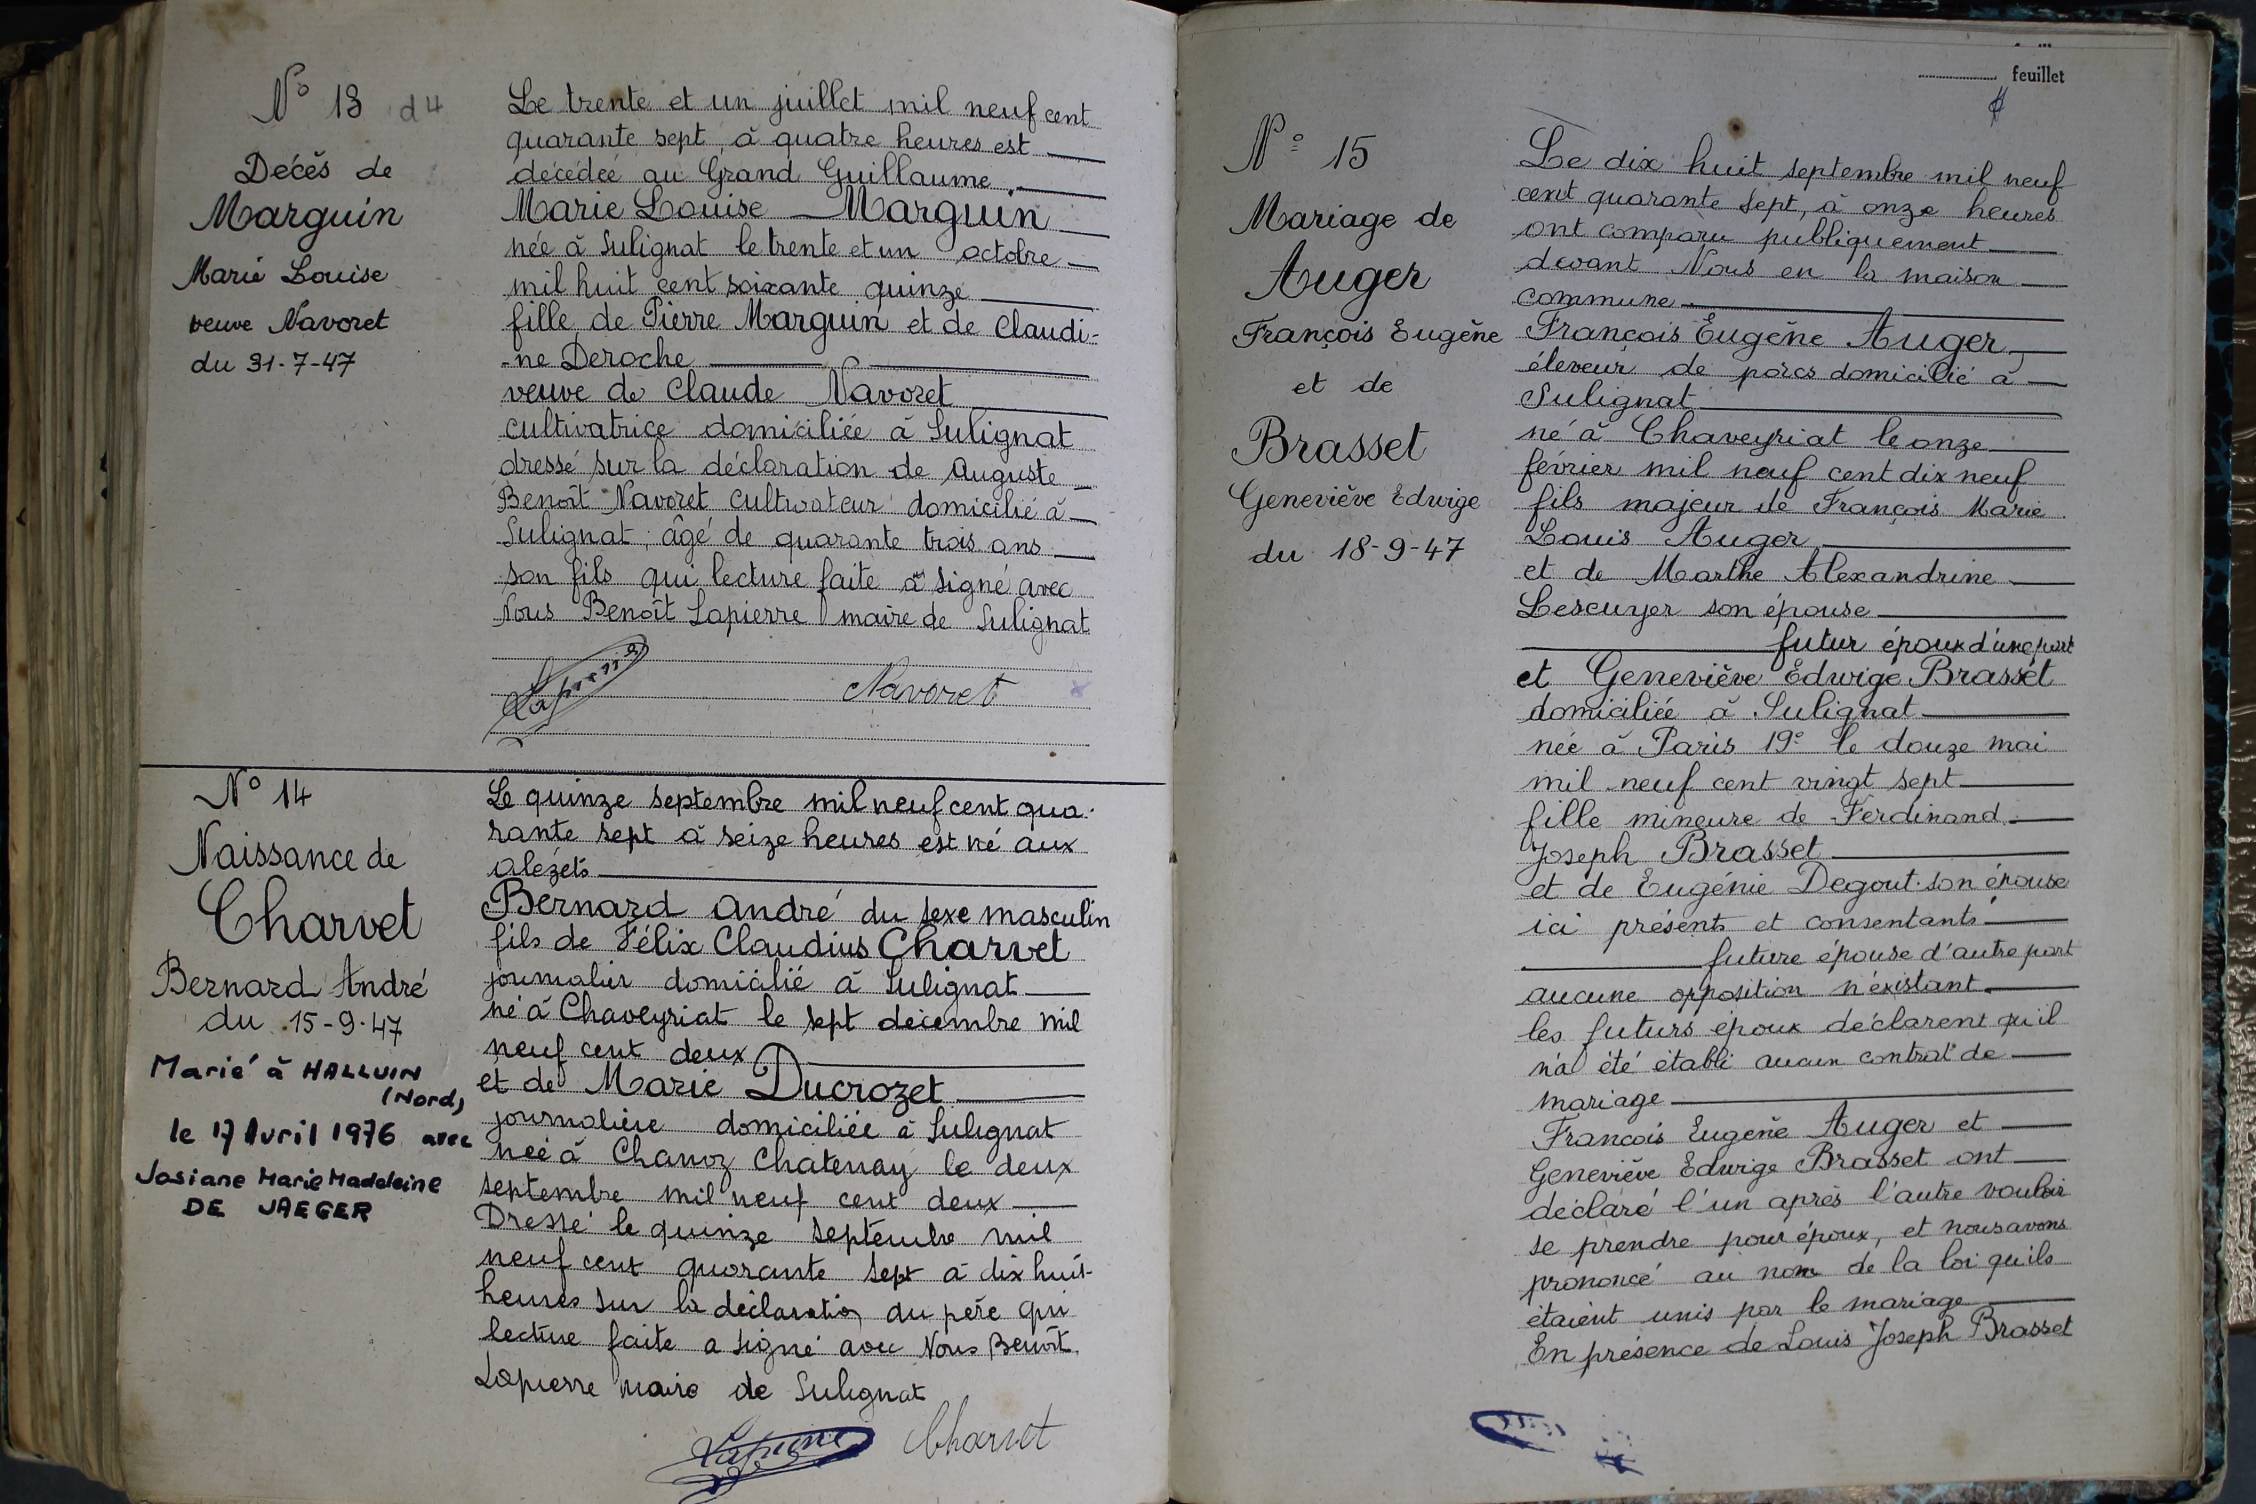 N° 13 d4
Décès de
Marguin
Marie Louise
veuve Navoret
du 31-7-47
Le trente et un juillet mil neuf cent
quarante sept, à quatre heures est
décédée au Grand Guillaume
Marie Louise Marguin
née à Sulignat le trente et un octobre
mil huit cent soixante quinze
fille de Pierre Marguin et de Claudi-
-ne Deroche
veuve de Claude Navoret
cultivatrice domiciliée à Sulignat
dressé sur la déclaration de Auguste
Benoît Navoret cultivateur domicilié à
Sulignat, âgé de quarante trois ans
son fils qui lecture faite a signé avec
Nous Benoît Lapierre maire de Sulignat
Lapierre Navoret
N° 14
Naissance de
Charvet
Bernard André
du 15-9-47
Marié à HALLUIN
(Nord)
le 17 Avril 1976 avec
Josiane Marie Madeleine
DE JAEGER
Le quinze septembre mil neuf cent qua-
rante sept à seize heures est né aux
alézets
Bernard André du sexe masculin
fils de Félix Claudius Charvet
journalier domicilié à Sulignat
né à Chaveyriat le sept décembre mil
neuf cent deux
et de Marie Ducrozet
journalière domiciliée à Sulignat
née à Chanoz Chatenay le deux
septembre mil neuf cent deux
Dressé le quinze septembre mil
neuf cent quarante sept à dix huit
heures sur la déclaration du père qui
lecture faite a signé avec Nous Benoît
Lapierre maire de Sulignat
Lapierre Charvet
feuillet
N° 15
Mariage de
Auger
François Eugène
et de
Brasset
Geneviève Edwige
du 18-9-47
Le dix huit septembre mil neuf
cent quarante sept, à onze heures
ont comparu publiquement
devant Nous en la maison
commune
François Eugène Auger,
éleveur de porcs domicilié à
Sulignat
né à Chaveyriat le onze
février mil neuf cent dix neuf
fils majeur de François Marie
Louis Auger
et de Marthe Alexandrine
Lescuyer son épouse
futur époux d'une part
et Geneviève Edwige Brasset
domiciliée à Sulignat
née à Paris 19e le douze mai
mil neuf cent vingt sept
fille mineure de Ferdinand
Joseph Brasset
et de Eugénie Degout son épouse
ici présents et consentants
future épouse d'autre part
aucune opposition n'éxistant
les futurs époux déclarent qu'il
n'a été établi aucun contrat de
mariage
François Eugène Auger et
Geneviève Edwige Brasset ont
déclaré l'un après l'autre vouloir
se prendre pour époux, et nous avons
prononcé au nom de la loi qu'ils
étaient unis par le mariage
En présence de Louis Joseph Brasset